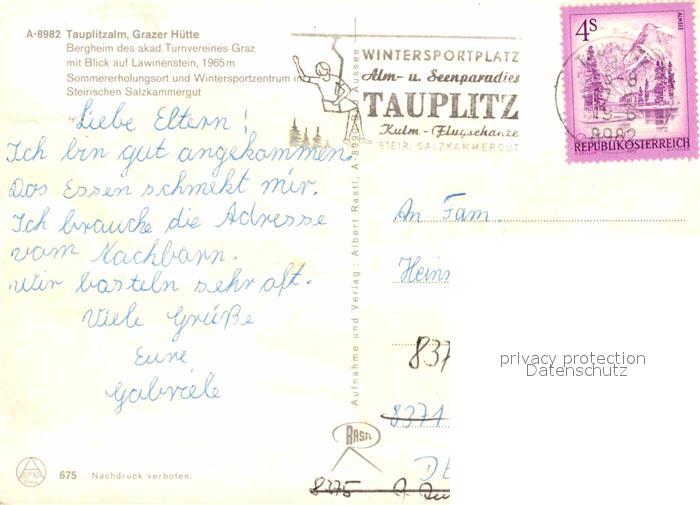 A-8982 Tauplitzalm, Grazer Hütte
Bergheim des akad. Turnvereines Graz
mit Blick auf Lawinenstein, 1965 m
Sommererholungsort und Wintersportzentrum im
Steirischen Salzkammergut
Liebe Eltern!
Ich bin gut angekommen.
Das Essen schmekt mir.
Ich brauche die Adresse
vom Nachbarn.
Wir basteln sehr oft.
Viele Grüße
Eure
Gabriele
675 Nachdruck verboten.
Aufnahme und Verlag: Albert Rastl, A-8990 Bad Aussee
RASTL
WINTERSPORTPLATZ
Alm- u. Seenparadies
TAUPLITZ
Kulm-Flugschanze
STEIR. SALZKAMMERGUT
8982
4S
ALMSEE
REPUBLIK ÖSTERREICH
An Fam.
Hein
837
8371
8375
privacy protection
Datenschutz